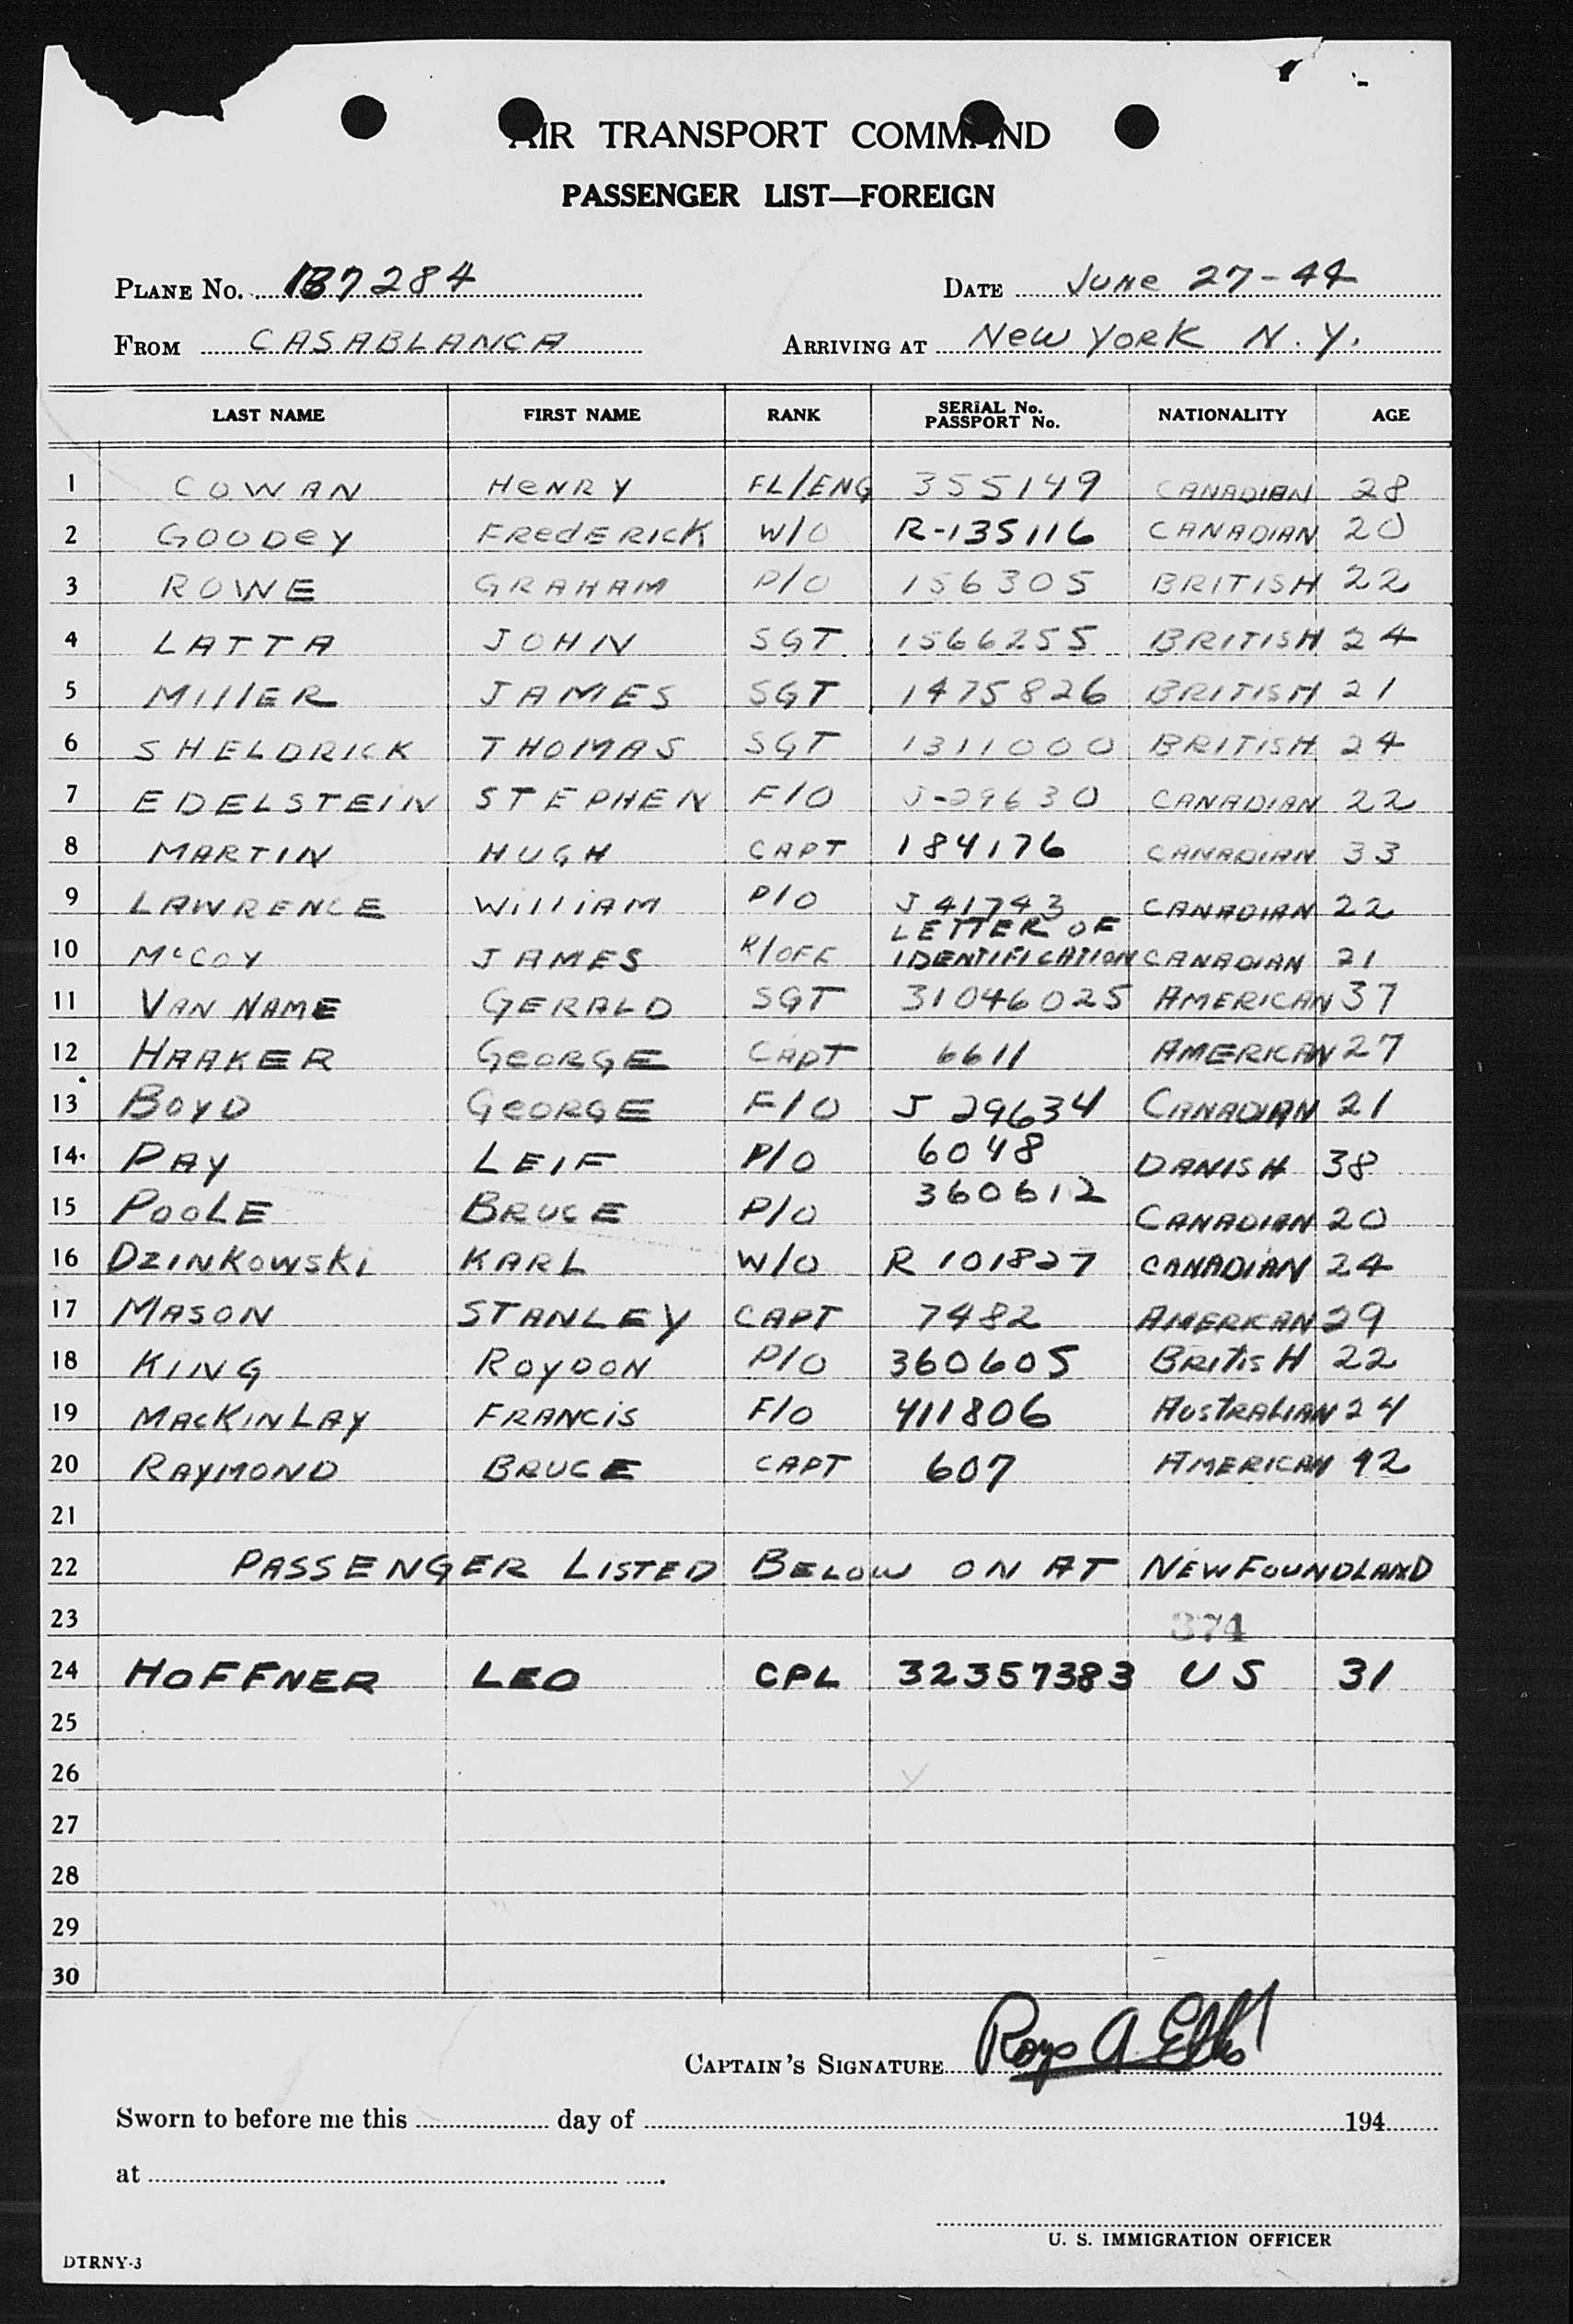 AIR TRANSPORT COMMAND
PASSENGER LIST—FOREIGN
PLANE No. 187284 DATE June 27-44
FROM CASABLANCA ARRIVING AT New York N.Y.
LAST NAME FIRST NAME RANK SERIAL No. PASSPORT No. NATIONALITY AGE
1 COWAN HENRY FL/ENG 355149 CANADIAN 28
2 GOODEY FREDERICK W/O R-135116 CANADIAN 20
3 ROWE GRAHAM P/O 156305 BRITISH 22
4 LATTA JOHN SGT 1566255 BRITISH 24
5 MILLER JAMES SGT 1475826 BRITISH 21
6 SHELDRICK THOMAS SGT 1311000 BRITISH 24
7 EDELSTEIN STEPHEN F/O J-29630 CANADIAN 22
8 MARTIN HUGH CAPT 184176 CANADIAN 33
9 LAWRENCE WILLIAM P/O J 41743 CANADIAN 22
10 McCOY JAMES R/OFF LETTER OF IDENTIFICATION CANADIAN 21
11 VAN NAME GERALD SGT 31046025 AMERICAN 37
12 HAAKER GEORGE CAPT 6611 AMERICAN 27
13 BOYD GEORGE F/O J 29634 CANADIAN 21
14 PAY LEIF P/O 6048 DANISH 38
15 POOLE BRUCE P/O 360612 CANADIAN 20
16 DZINKOWSKI KARL W/O R 101827 CANADIAN 24
17 MASON STANLEY CAPT 7482 AMERICAN 29
18 KING ROYDON P/O 360605 BRITISH 22
19 MACKINLAY FRANCIS F/O 411806 AUSTRALIAN 24
20 RAYMOND BRUCE CAPT 607 AMERICAN 42
21
22 PASSENGER LISTED BELOW ON AT NEWFOUNDLAND
23 374
24 HOFFNER LEO CPL 32357383 US 31
25
26
27
28
29
30
CAPTAIN'S SIGNATURE
Sworn to before me this day of 194
at
U. S. IMMIGRATION OFFICER
DTRNY-3